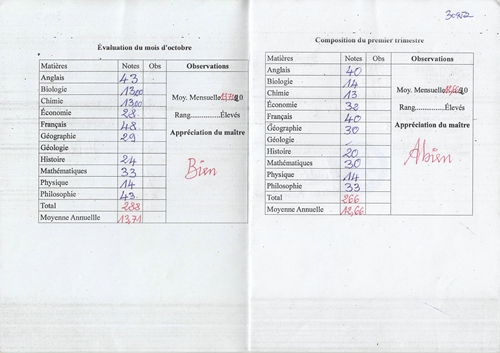 30452
Évaluation du mois d'octobre
Matières Notes Obs Observations
Anglais 43
Biologie 13,00 Moy. Mensuelle 13,71/20
Chimie 13,00
Économie 28 Rang...............Élevés
Français 48
Géographie 29 Appréciation du maître
Géologie
Histoire 24 Bien
Mathématiques 33
Physique 14
Philosophie 43
Total 288
Moyenne Annuellle 13,71
Composition du premier trimestre
Matières Notes Obs Observations
Anglais 40
Biologie 14 Moy. Mensuelle 12,66/20
Chimie 13
Économie 32 Rang...............Élevés
Français 40
Géographie 30 Appréciation du maître
Géologie
Histoire 20 Abien
Mathématiques 30
Physique 14
Philosophie 33
Total 266
Moyenne Annuelle 12,66